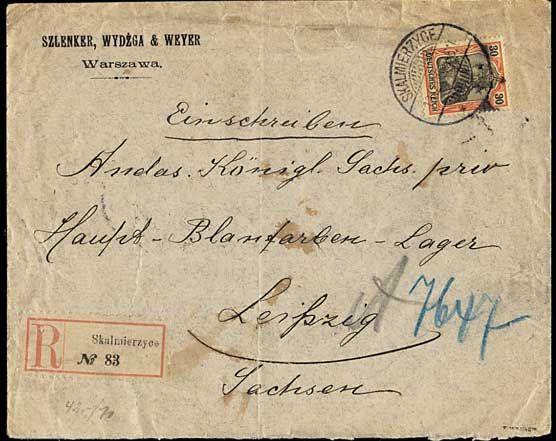 SZLENKER, WYDŻGA & WEYER
Warszawa.
SKALMIERZYCE
30 30
DEUTSCHES REICH
Einschreiben
An das. Königl. Sächs. priv
Haupt - Blanfarben - Lager
Leipzig
7647
Sachsen
R Skalmierzyce
№ 83